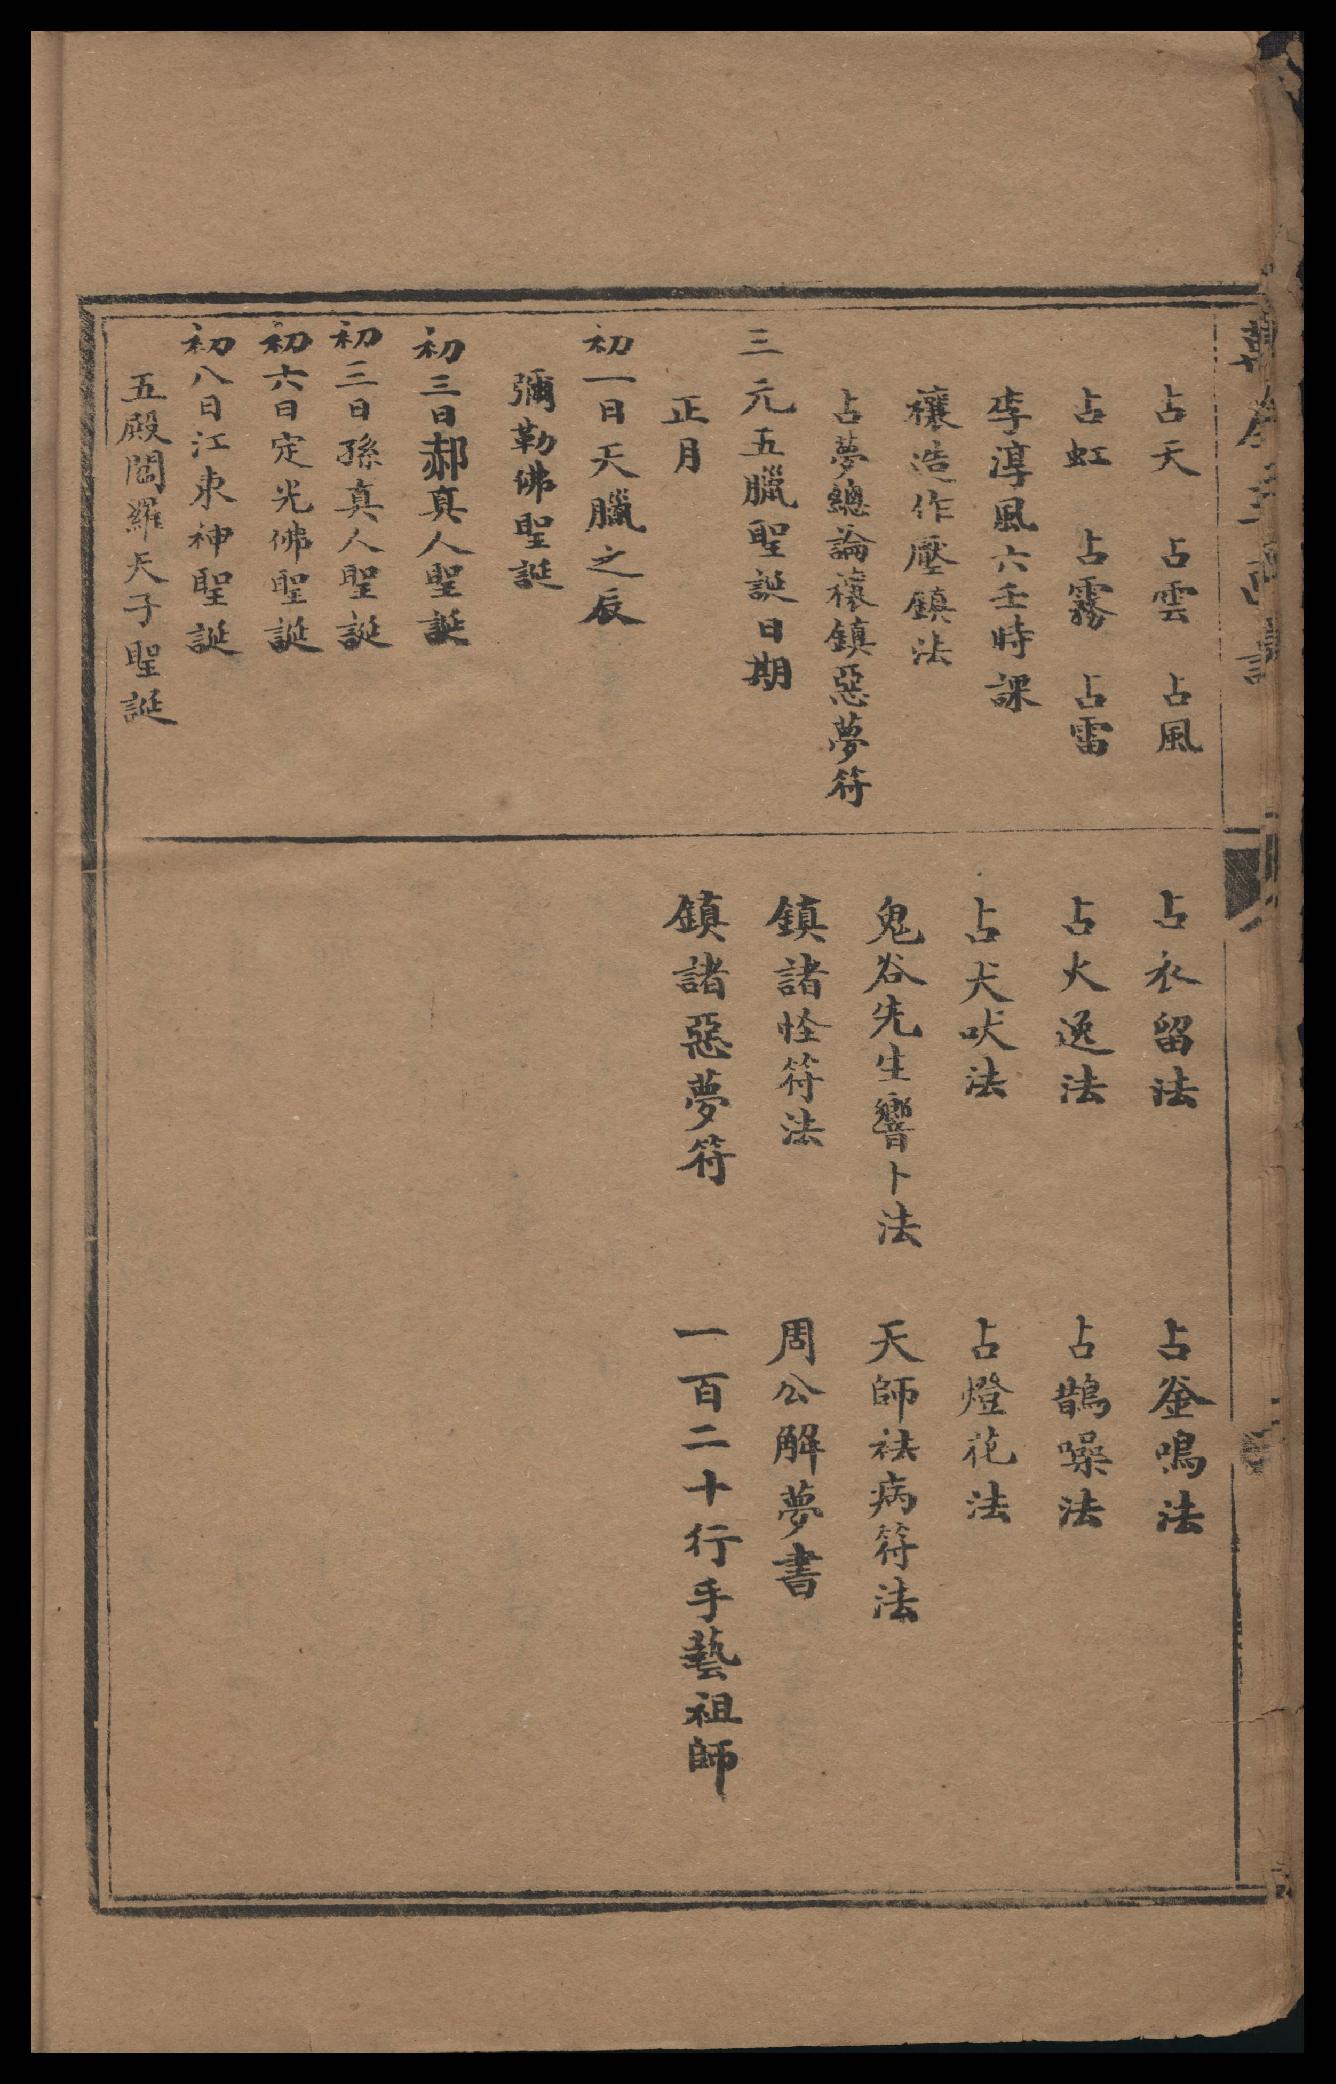 占天　占雲　占風
占虹　占霧　占雷
李淳風六壬時課
禳造作壓鎮法
占夢總論禳鎮惡夢符
三元五臘聖誕日期
正月
初一日天臘之辰
彌勒佛聖誕
初三日郝真人聖誕
初三日孫真人聖誕
初六日定光佛聖誕
初八日江東神聖誕
五殿閻羅天子聖誕
占衣留法　占釜鳴法
占火逸法　占鵲噪法
占犬吠法　占燈花法
鬼谷先生響卜法　天師祛病符法
鎮諸怪符法　周公解夢書
鎮諸惡夢符　一百二十行手藝祖師